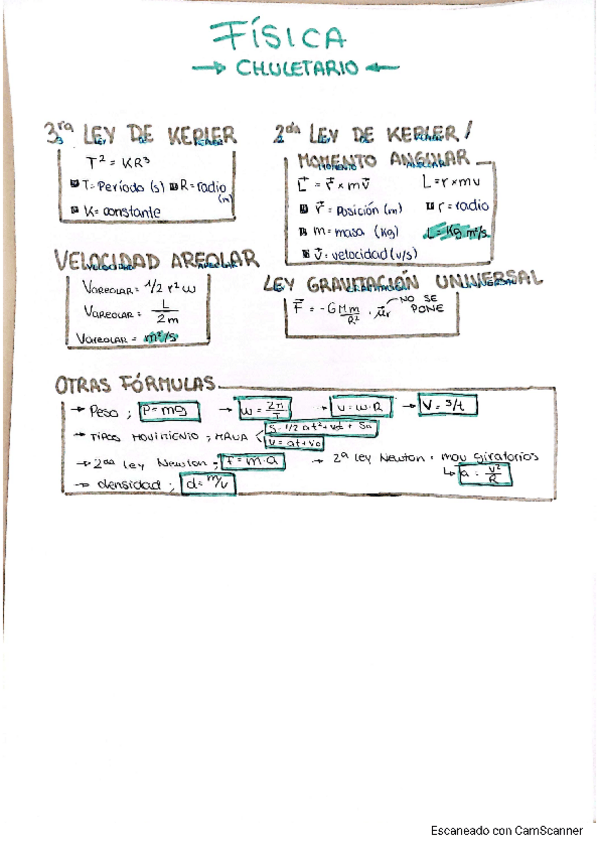 FÍSICA
→ CHULETARIO ←
3ra LEY DE KEPLER
T² = KR³
T = Período (s) R = radio (m)
K = constante
2da LEY DE KEPLER /
MOMENTO ANGULAR
L = r × mv L = r × mv
r = Posición (m) r = radio
m = masa (kg) L = Kg m²/s
v = velocidad (v/s)
VELOCIDAD AREOLAR
VAREOLAR = 1/2 r² w
VAREOLAR = L/2m
VAREOLAR = m²/s
LEY GRAVITACIÓN UNIVERSAL
F = -G Mm/R² · ur NO SE PONE
OTRAS FÓRMULAS
→ Peso ; P = mg → w = 2π/T → v = w·R → V = s/t
→ TIPOS MOVIMIENTO ; MRUA S = 1/2 at² + vot + So
v = at + vo
→ 2da Ley Newton ; F = m·a → 2ª Ley Newton : mov giratorios
→ densidad ; d = m/v ↳ a = v²/R
Escaneado con CamScanner